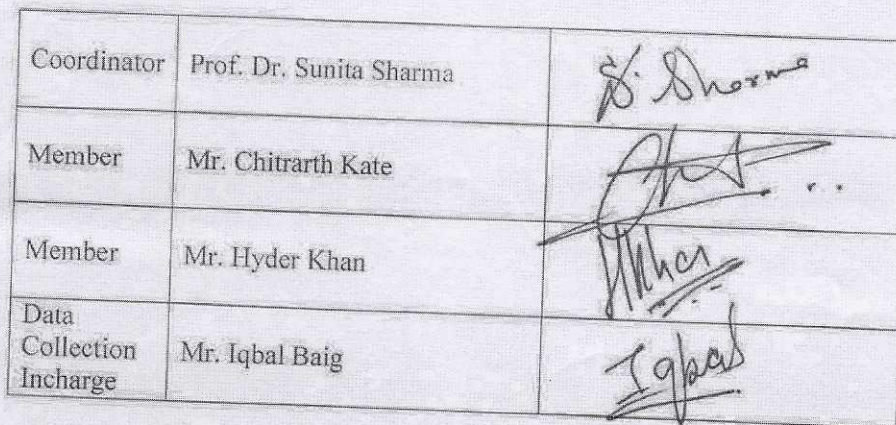 Coordinator Prof. Dr. Sunita Sharma S. Sharma
Member Mr. Chitrarth Kate
Member Mr. Hyder Khan HKhan
Data
Collection Mr. Iqbal Baig Iqbal
Incharge